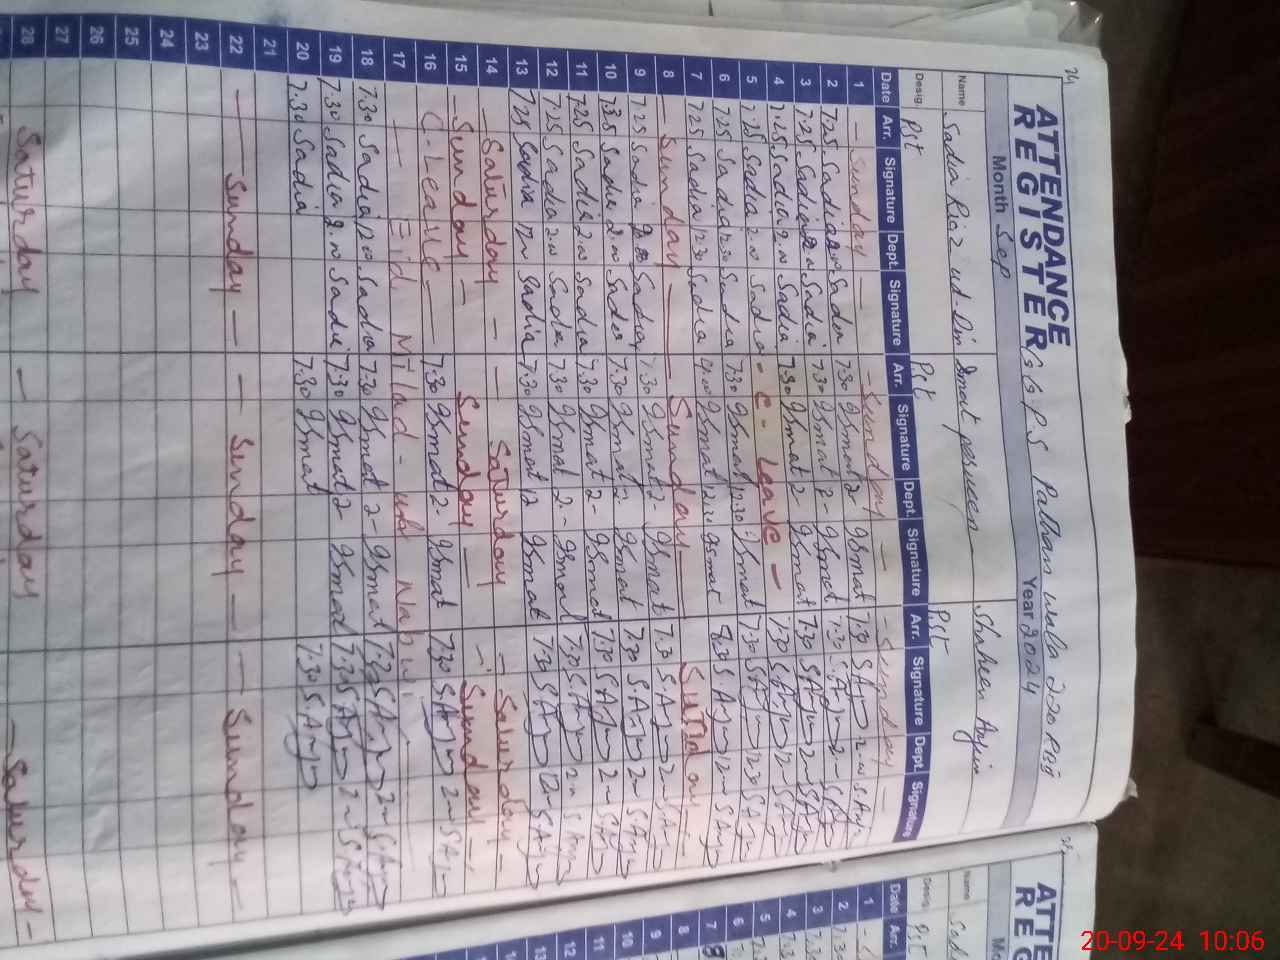 ATTENDANCE REGISTER G.G.P.S Pathan wala 220 RB
Month Sep Year 2024
Name Sadia Riaz ud Din Ismat perveen Shaheen Anjum
Desig. Pst Pst Pst
Date Arr. Signature Dept. Signature Arr. Signature Dept. Signature Arr. Signature Dept. Signature
1 - Sunday - - Sunday - - Sunday -
2 7.25 Sadia Sadia 7.30 Ismat 2 Ismat 7.30 S.Anjum 2 S.Anjum
3 7.25 Sadia Sadia 7.30 Ismat 2 Ismat 7.30 S.Anjum 2 S.Anjum
4 7.25 Sadia 2 Sadia 7.30 Ismat 2 Ismat 7.30 S.Anjum 2 S.Anjum
5 7.25 Sadia 2 Sadia - C-Leave - 7.30 S.Anjum 12 S.Anjum
6 7.25 Sadia 12.30 Sadia 7.30 Ismat 12.30 Ismat 7.30 S.Anjum 12.30 S.Anjum
7 7.25 Sadia 12.30 Sadia Ismat 12 Ismat 8.30 S.Anjum 12 S.Anjum
8 - Sunday - Sunday - Sunday -
9 7.25 Sadia Sadia 7.30 Ismat 2 Ismat 7.30 S.Anjum 2 S.Anjum
10 7.35 Sadia 2 Sadia 7.30 Ismat 2 Ismat 7.30 S.Anjum 2 S.Anjum
11 7.25 Sadia 2 Sadia 7.30 Ismat 2- Ismat 7.30 S.Anjum 2 S.Anjum
12 7.25 Sadia 2 Sadia 7.30 Ismat 2- Ismat 7.30 S.Anjum 2 S.Anjum
13 7.25 Sadia 12 Sadia 7.30 Ismat 12 Ismat 7.30 S.Anjum 12 S.Anjum
14 - Saturday - - Saturday - Saturday -
15 Sunday - Sunday - - Sunday -
16 C.Leave 7.30 Ismat 2- Ismat 7.30 S.Anjum 2 S.Anjum
17 - Eid Milad - un Nabi
18 7.30 Sadia 12.00 Sadia 7.30 Ismat 2- Ismat S.Anjum 2 S.Anjum
19 7.30 Sadia 2 Sadia 7.30 Ismat 2- Ismat 7.25 S.Anjum 2 S.Anjum
20 7.30 Sadia 7.30 Ismat 7.30 S.Anjum
21
22 - Sunday - - Sunday - - Sunday -
23
24
25
26
27
28 Saturday - Saturday - Saturday -
ATTE
REG
Mo
Name Sad
Desig Pst
Date Arr.
1
2
3
4
5
6
7
8
9
10
11
12
13
20-09-24 10:06